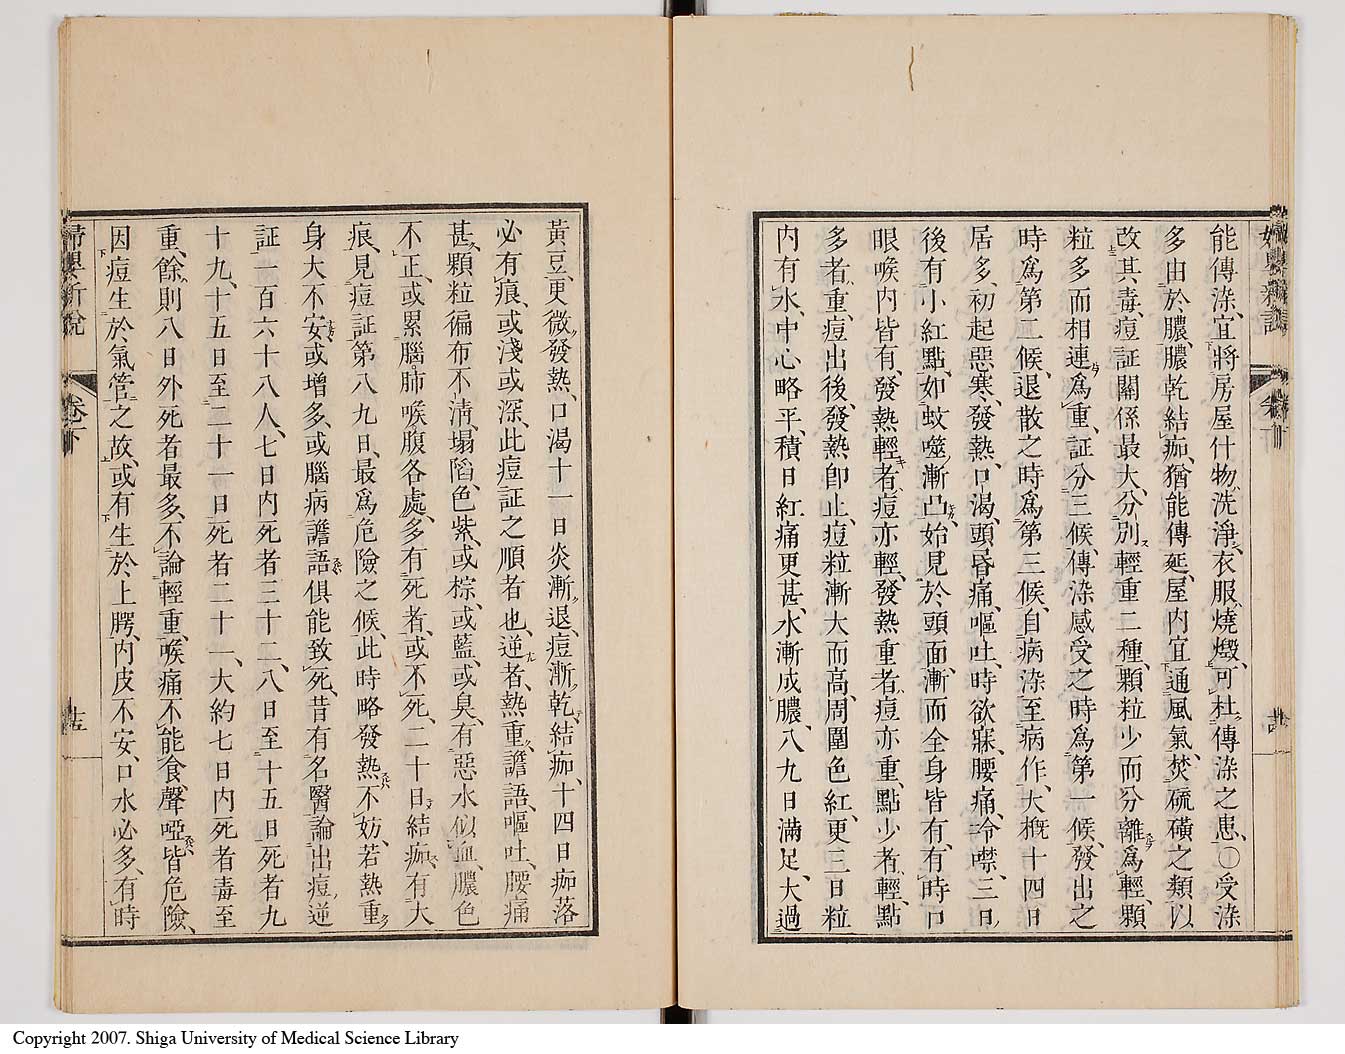 能傳染、宜將房屋什物、洗淨衣服、燒燬、可杜傳染之患、〇受染
多由於膿、膿乾結痂、猶能傳延、屋内宜通風氣、焚硫磺之類以
改其毒、痘証關係最大、分別輕重二種、顆粒少而分離爲輕、顆
粒多而相連爲重、証分三候、傳染感受之時爲第一候、發出之
時爲第二候、退散之時爲第三候、自病染至病作、大槪十四日
居多、初起惡寒、發熱、口渴、頭昏痛、嘔吐、時欲寐、腰痛、冷噤、三日
後有小紅點、如蚊噬漸凸、始見於頭面、漸而全身皆有、有時口
眼喉内皆有、發熱輕者、痘亦輕、發熱重者、痘亦重、點少者、輕、點
多者、重、痘出後、發熱卽止、痘粒漸大而高、周圍色紅、更三日粒
内有水、中心略平、積日紅痛更甚、水漸成膿、八九日滿足、大過
黃豆、更微發熱、口渴十一日炎漸退、痘漸乾、結痂、十四日痂落
必有痕、或淺或深、此痘証之順者也、逆者、熱重、譫語、嘔吐、腰痛
甚、顆粒徧布不淸、塌陷、色紫、或棕、或藍、或臭、有惡水似血、膿色
不正、或累腦肺喉腹各處、多有死者、或不死、二十日結痂、有大
痕、見痘証第八九日、最爲危險之候、此時略發熱不妨、若熱重
身大不安、或增多、或腦病譫語、俱能致死、昔有名醫論出痘逆
証一百六十八人、七日内死者三十二、八日至十五日死者九
十九、十五日至二十一日死者二十一、大約七日内死者毒至
重、餘則八日外死者最多、不論輕重、喉痛不能食、聲啞、皆危險、
因痘生於氣管之故、或有生於上腭、内皮不安、口水必多、有時
婦嬰新說
卷下